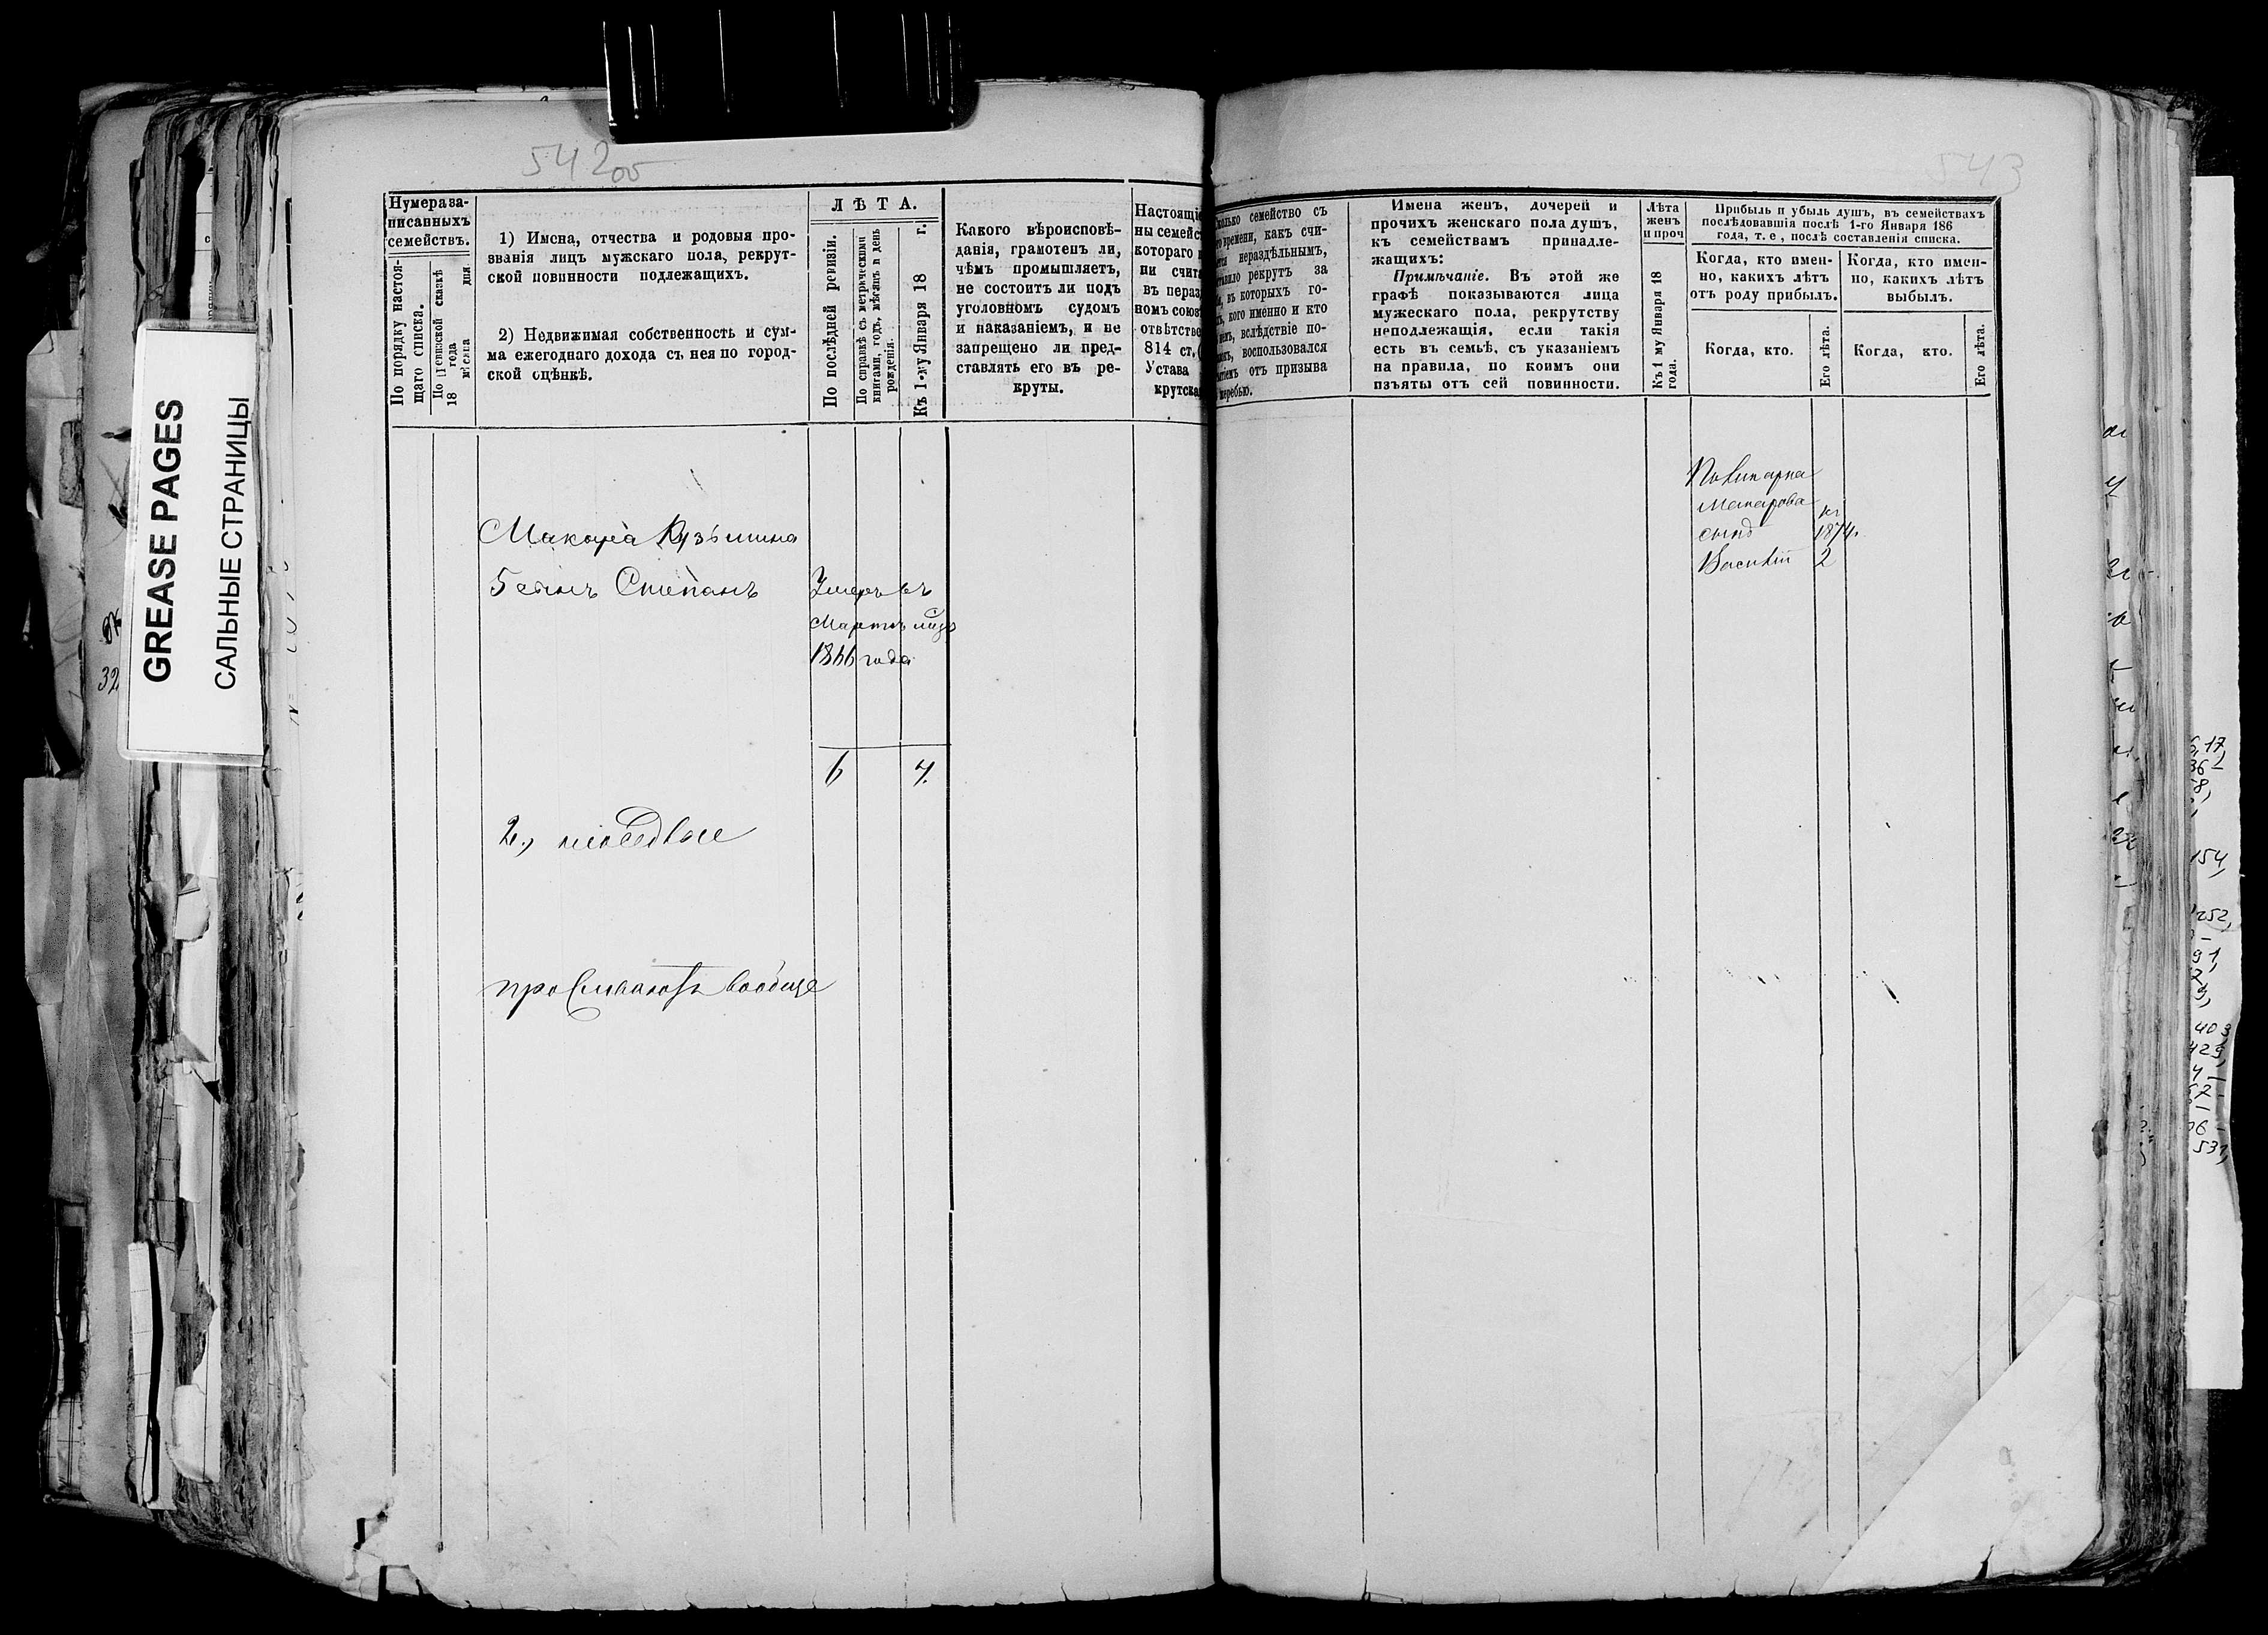 542об
543
GREASE PAGES
САЛЬНЫЕ СТРАНИЦЫ
Нумера за-
писанныхъ
семействъ.
По порядку настоя-
щаго списка.
По ревизской сказкѣ
18 года
мѣсяца дня.
1) Имена, отчества и родовыя про-
званія лицъ мужскаго пола, рекрут-
ской повинности подлежащихъ.
2) Недвижимая собственность и сум-
ма ежегоднаго дохода съ нея по город-
ской оцѣнкѣ.
ЛѢТА.
По послѣдней ревизіи.
По справкѣ съ метрическими
книгами, годъ, мѣсяцъ и день
рожденія.
Къ 1-му Января 18 г.
Какого вѣроисповѣ-
данія, грамотенъ ли,
чѣмъ промышляетъ,
не состоитъ ли подъ
уголовномъ судомъ
и наказаніемъ, и не
запрещено ли пред-
ставлять его въ ре-
круты.
Настоящі
ны семейс
котораго
ни счит
въ нераз
номъ союз
отвѣтстве
814 ст.
Устава
крутска
семейство съ
времени, какъ счи-
нераздѣльнымъ,
рекрутъ за
въ которыхъ го-
кого именно и кто
вслѣдствіе по-
воспользовался
отъ призыва
жеребью.
Имена женъ, дочерей и
прочихъ женскаго пола душъ,
къ семействамъ принадле-
жащихъ:
Примѣчаніе. Въ этой же
графѣ показываются лица
мужескаго пола, рекрутству
неподлежащія, если такія
есть въ семьѣ, съ указаніемъ
на правила, по коимъ они
изъяты отъ сей повинности.
Лѣта
женъ
и проч
Къ 1 му Января 18
года.
Прибыль и убыль душъ, въ семействахъ
послѣдовавшія послѣ 1-го Января 186
года, т. е, послѣ составленія списка.
Когда, кто имен-
но, какихъ лѣтъ
отъ роду прибылъ.
Когда, кто имен-
но, какихъ лѣтъ
выбылъ.
Когда, кто.
Его лѣта.
Когда, кто.
Его лѣта.
Макара Кузьмина
5 сынъ Степанъ
Умеръ въ
Мартѣ мцѣ
1866 года
6 7.
2., 
проживаютъ вообще
Поликарпа
Макарова
сынъ
Василій
къ
1874.
2